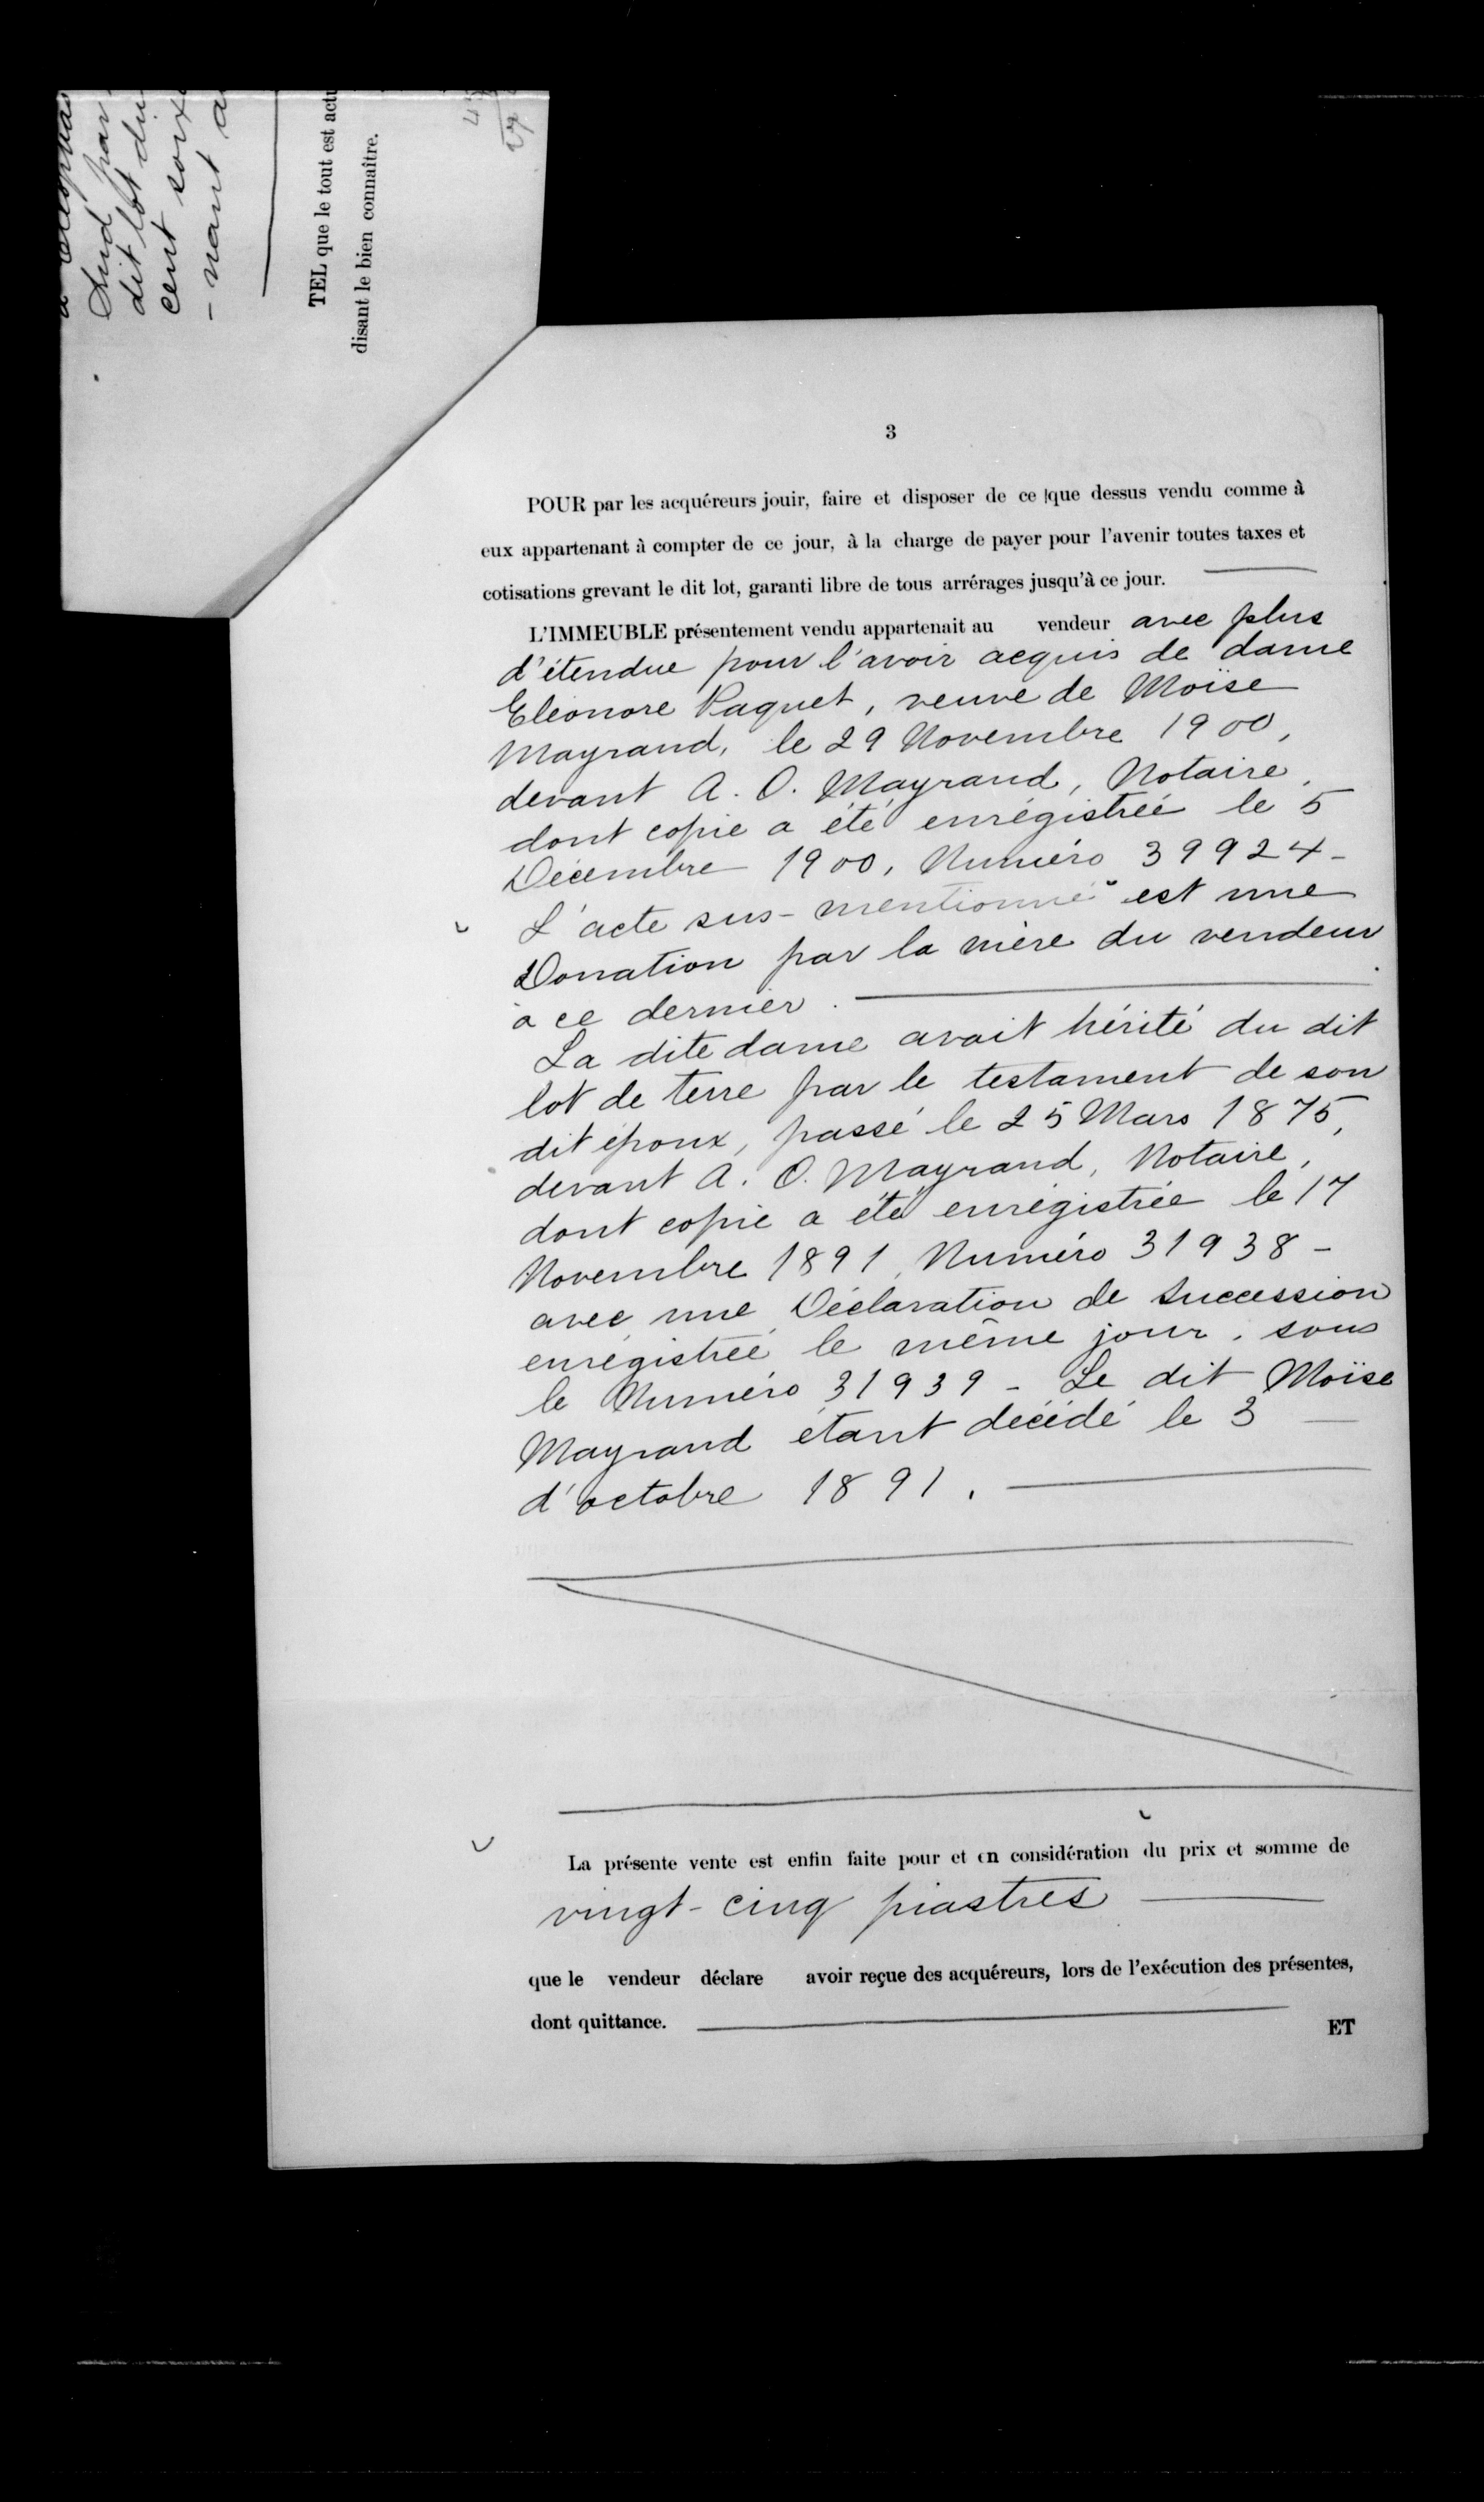 dit lot du
cent soix
- nant a
TEL que le tout est actu
disant le bien connaître.
3
POUR par les acquéreurs jouir, faire et disposer de ce que dessus vendu comme à
eux appartenant à compter de ce jour, à la charge de payer pour l'avenir toutes taxes et
cotisations grevant le dit lot, garanti libre de tous arrérages jusqu'à ce jour.
L'IMMEUBLE présentement vendu appartenait au vendeur avec plus
d'étendue pour l'avoir acquis de dame
Eléonore Paquet, veuve de Moïse
Mayrand, le 29 Novembre 1900,
devant A. O. Mayrand, Notaire,
dont copie a été enrégistrée le 5
Décembre 1900, Numéro 39924-
L'acte sus-mentionné est une
Donation par la mère du vendeur
à ce dernier.
La dite dame avait hérité du dit
lot de terre par le testament de son
dit époux, passé le 25 Mars 1875,
devant A. O. Mayrand, Notaire,
dont copie a été enrégistrée le 17
Novembre 1891, Numéro 31938 -
avec une Déclaration de Succession
enrégistrée le même jour, sous
le Numéro 31939 - Le dit Moïse
Mayrand étant décédé le 3
d'octobre 1891.
La présente vente est enfin faite pour et en considération du prix et somme de
vingt-cinq piastres
que le vendeur déclare avoir reçue des acquéreurs, lors de l'exécution des présentes,
dont quittance.
ET